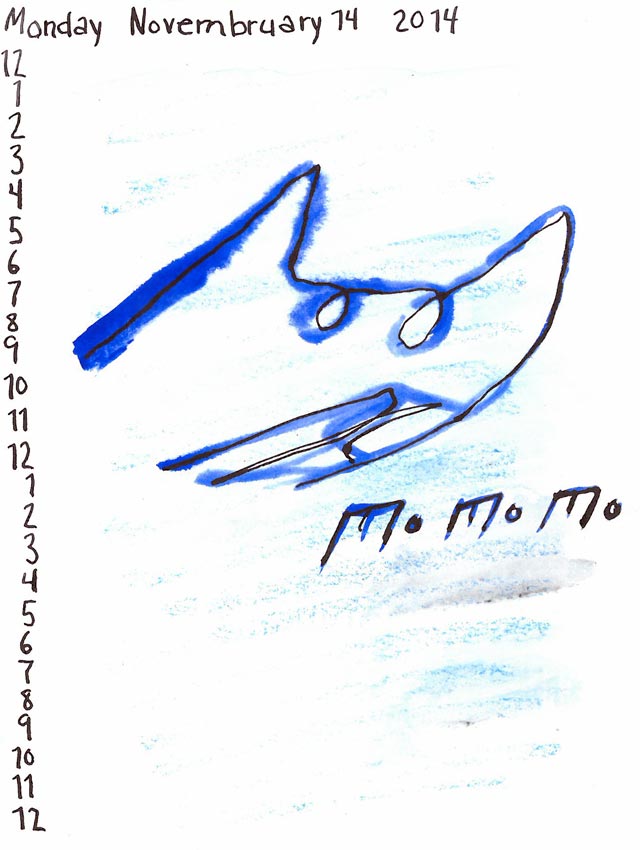 Monday Novembruary 14 2014
12
1
2
3
4
5
6
7
8
9
10
11
12
1
2
3
4
5
6
7
8
9
10
11
12
mo mo mo